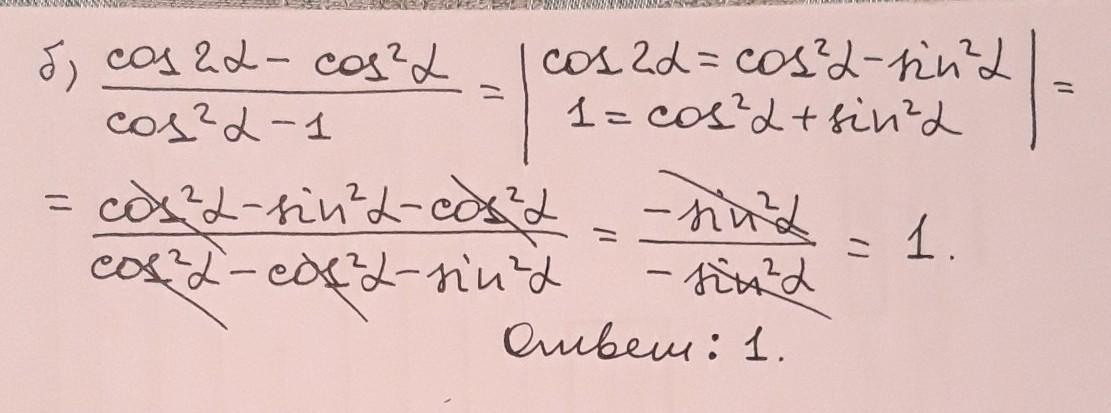 б) (cos 2α - cos²α)/(cos²α - 1) = | cos 2α = cos²α - sin²α
1 = cos²α + sin²α | =
= (cos²α - sin²α - cos²α)/(cos²α - cos²α - sin²α) = (-sin²α)/(-sin²α) = 1.
Ответ: 1.